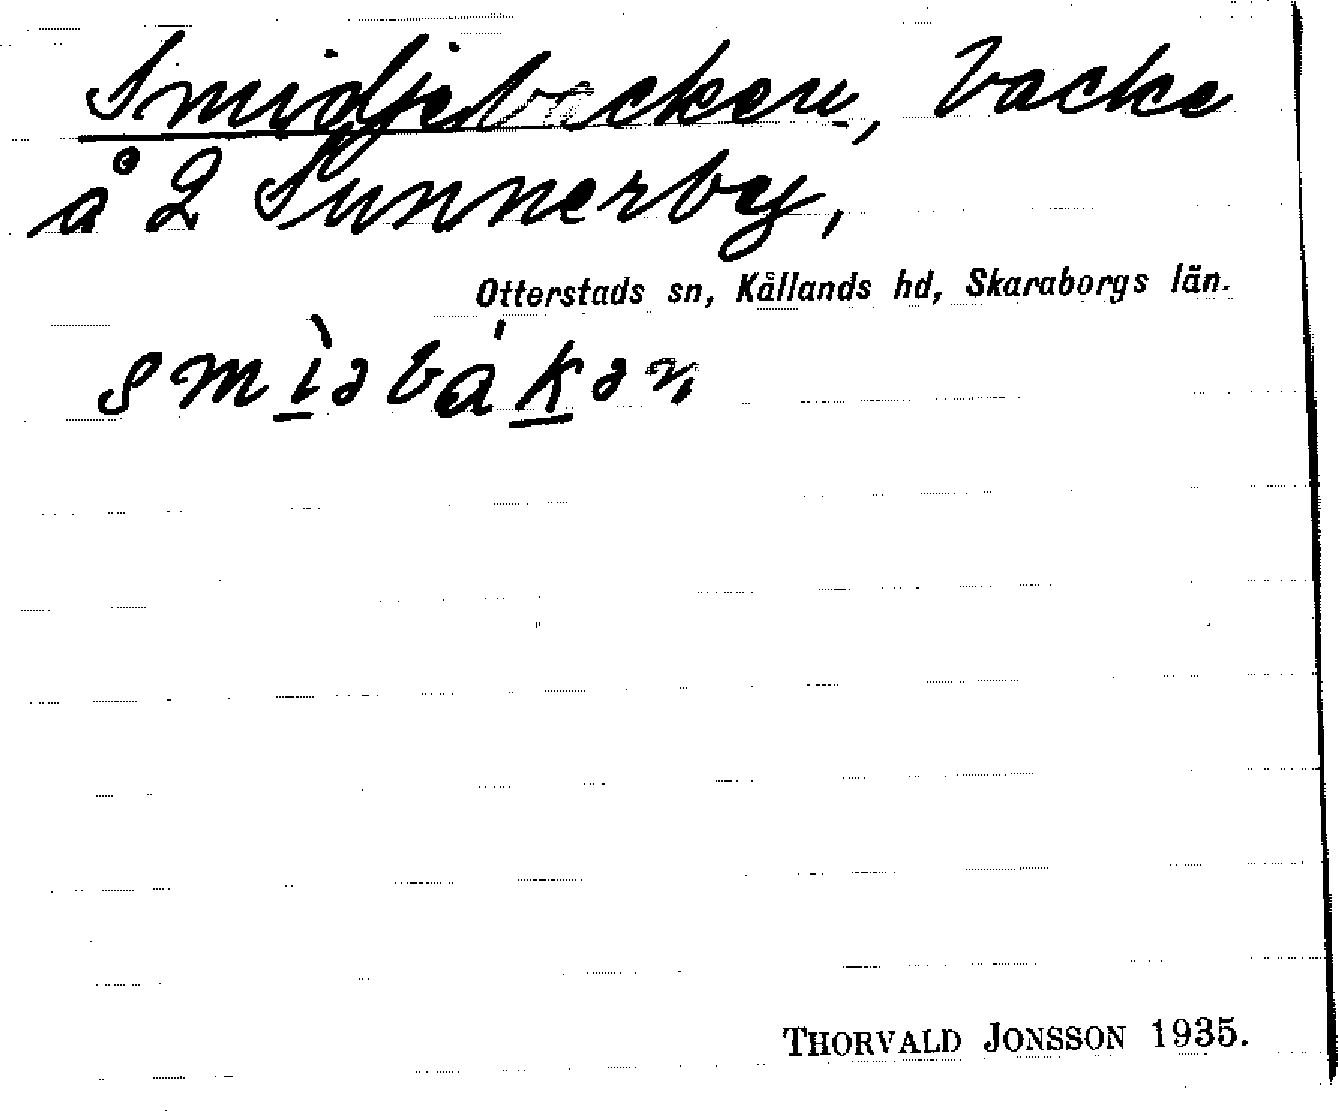 Smidjebacken, backe
å 2 Sunnerby,
Otterstads sn, Kållands hd, Skaraborgs län.
smì̱əbáḵən
THORVALD JONSSON 1935.